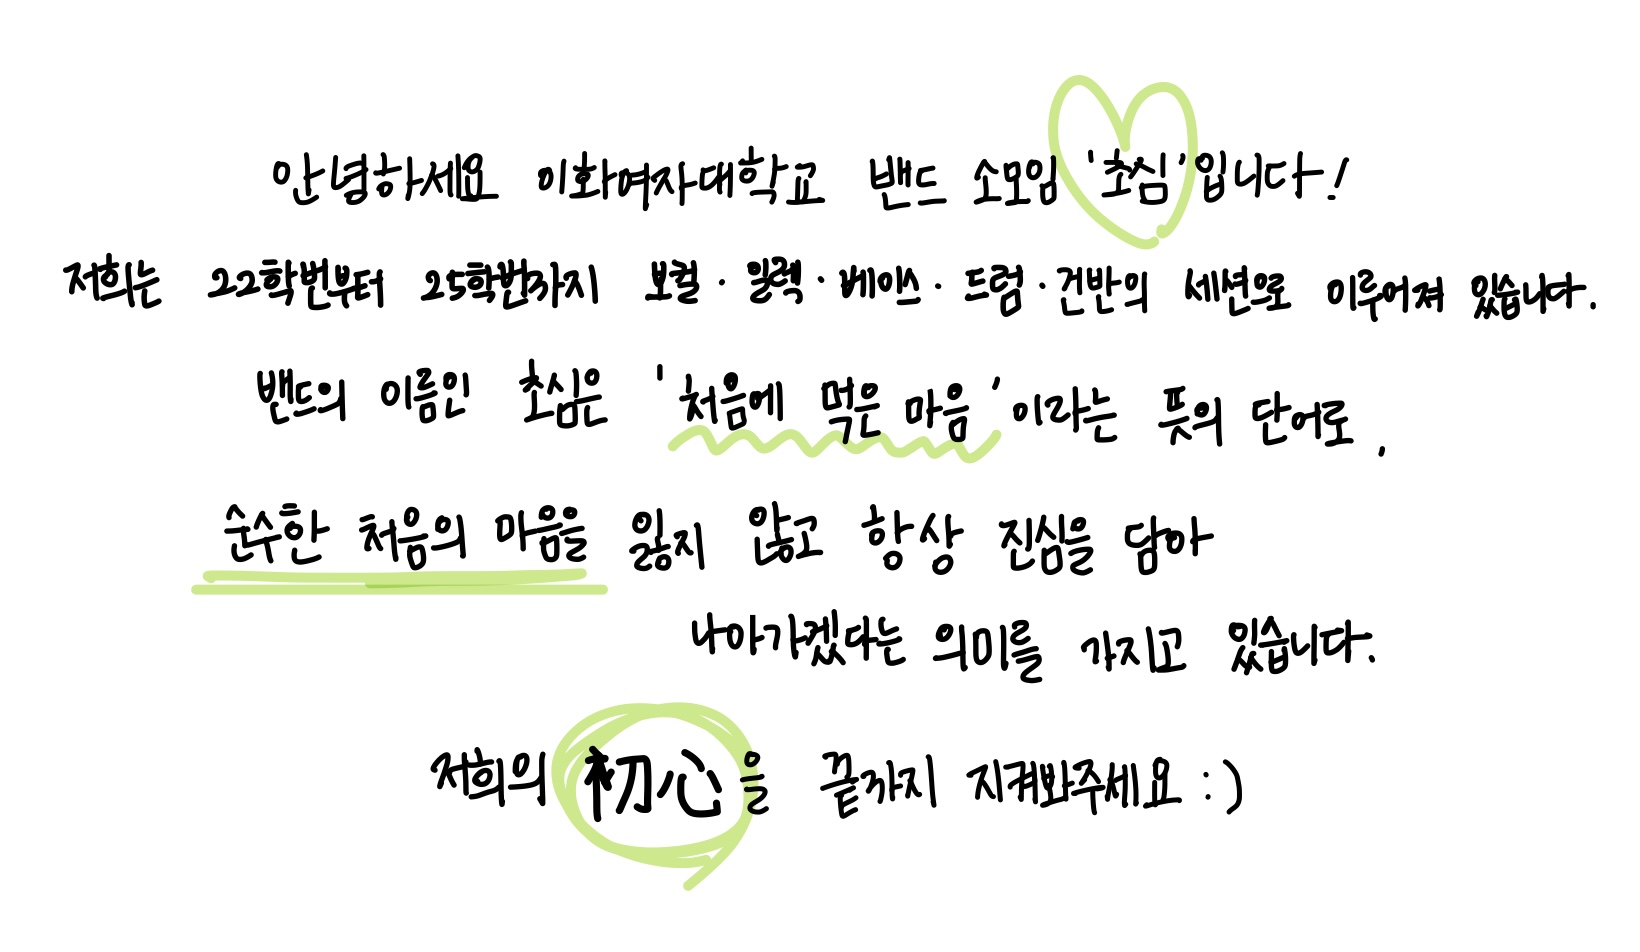 안녕하세요 이화여자대학교 밴드 소모임 '초심'입니다!
저희는 22학번부터 25학번까지 보컬·일렉·베이스·드럼·건반의 세션으로 이루어져 있습니다.
밴드의 이름인 초심은 '처음에 먹은 마음'이라는 뜻의 단어로,
순수한 처음의 마음을 잃지 않고 항상 진심을 담아
나아가겠다는 의미를 가지고 있습니다.
저희의 初心을 끝까지 지켜봐주세요 :)